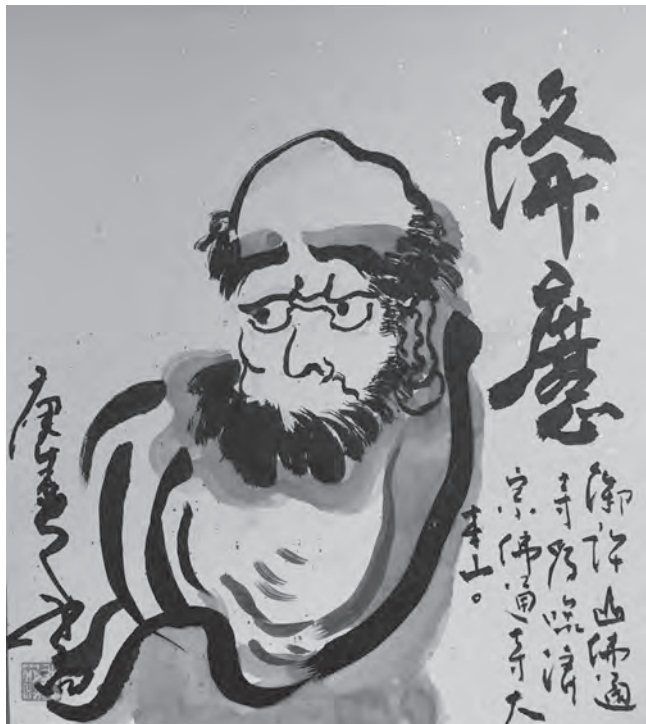 降魔
御許山佛通
寺为臨濟
宗佛通寺大
本山。